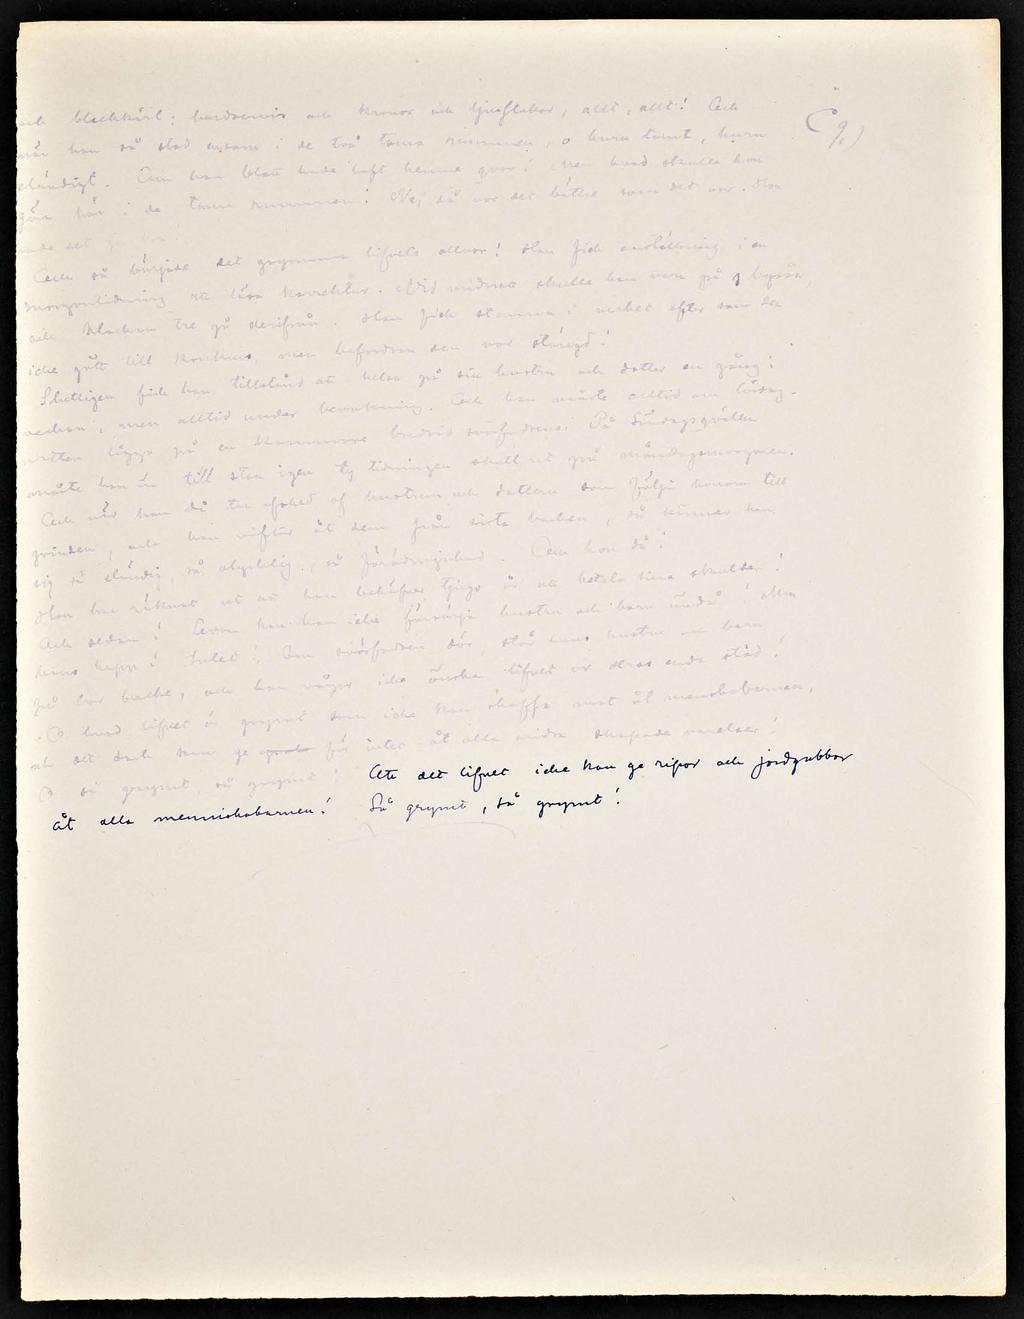 och bleckkärl; bordservis och kronor och ljusstakar, allt, allt! Och
när han så stod ensam i de två toma rummen, o huru tomt, huru
eländigt. Om han blott hade haft henne qvar! Men hvad skulle hon
göra här i de toma rummen! Nej, då var det bättre som det var. Hon
hade det ju bra!
Och så började det grymma lifvets allvar! Han fick anställning i en
morgontidning att läsa korrektur. Vid midnatt skulle han vara på byrån,
och klockan tre gå derifrån. Han fick stanna i verket efter som det
icke gått till konkurs, men befordran den var stängd!
Slutligen fick han tillstånd att helsa på sin hustru och dotter en gång i
veckan, men alltid under bevakning. Och han måste alltid om lördag-
natten ligga på en kammare bredvid svärfadrens. På Söndagsqvällen
måste han in till stan igen ty tidningen skall ut på måndagsmorgonen.
Och när han då tar afsked af hustrun och dottern som följt honom till
grinden, och han viftar åt dem från sista backen, då känner han
sig så eländig, så olycklig, så förödmjukad. Och hon då!
Han har räknat ut att han behöfver tjugo år att betala sina skulder!
Och sedan! Sedan kan han icke försörja hustru och barn ändå! Och
hans hopp! Intet! Om svärfadren dör, står hans hustru och barn
på bar backe, och han vågar icke önska lifvet ur deras enda stöd!
O hvad lifvet är grymt som icke kan skaffa mat åt menskobarnen,
när det dock kan ge för intet åt alla andra skapade varelser!
O så grymt, så grymt! Att det lifvet icke kan ge ripor och jordgubbar
åt alla menniskobarnen! Så grymt, så grymt!
9,)